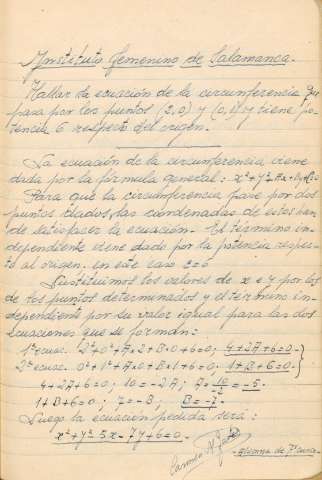 Instituto Femenino de Salamanca.
Hallar la ecuación de la circunferencia que
pasa por los puntos (2,0) y (0,1) y tiene po-
tencia 6 respecto del origen.
La ecuación de la circunferencia viene
dada por la fórmula general: x²+y²+Ax+By+C=0
Para que la circunferencia pase por dos
puntos dados, las coordenadas de estos han
de satisfacer la ecuación. El término in-
dependiente viene dado por la potencia respec-
to al origen, en este caso c=6
Sustituimos los valores de x e y por los
de los puntos determinados y el término in-
dependiente por su valor igual para las dos
ecuaciones que se forman:
1ª ecuac. 2²+0²+A×2+B×0+6=0; 4+2A+6=0
2ª ecuac. 0²+1²+A×0+B×1+6=0; 1+B+6=0
4+2A+6=0; 10=-2A; A=-10/2=-5.
1+B+6=0; 7=-B; B=-7.
Luego la ecuación pedida será:
x²+y²-5x-7y+6=0.
Carmen
-alumna de 7º curso-